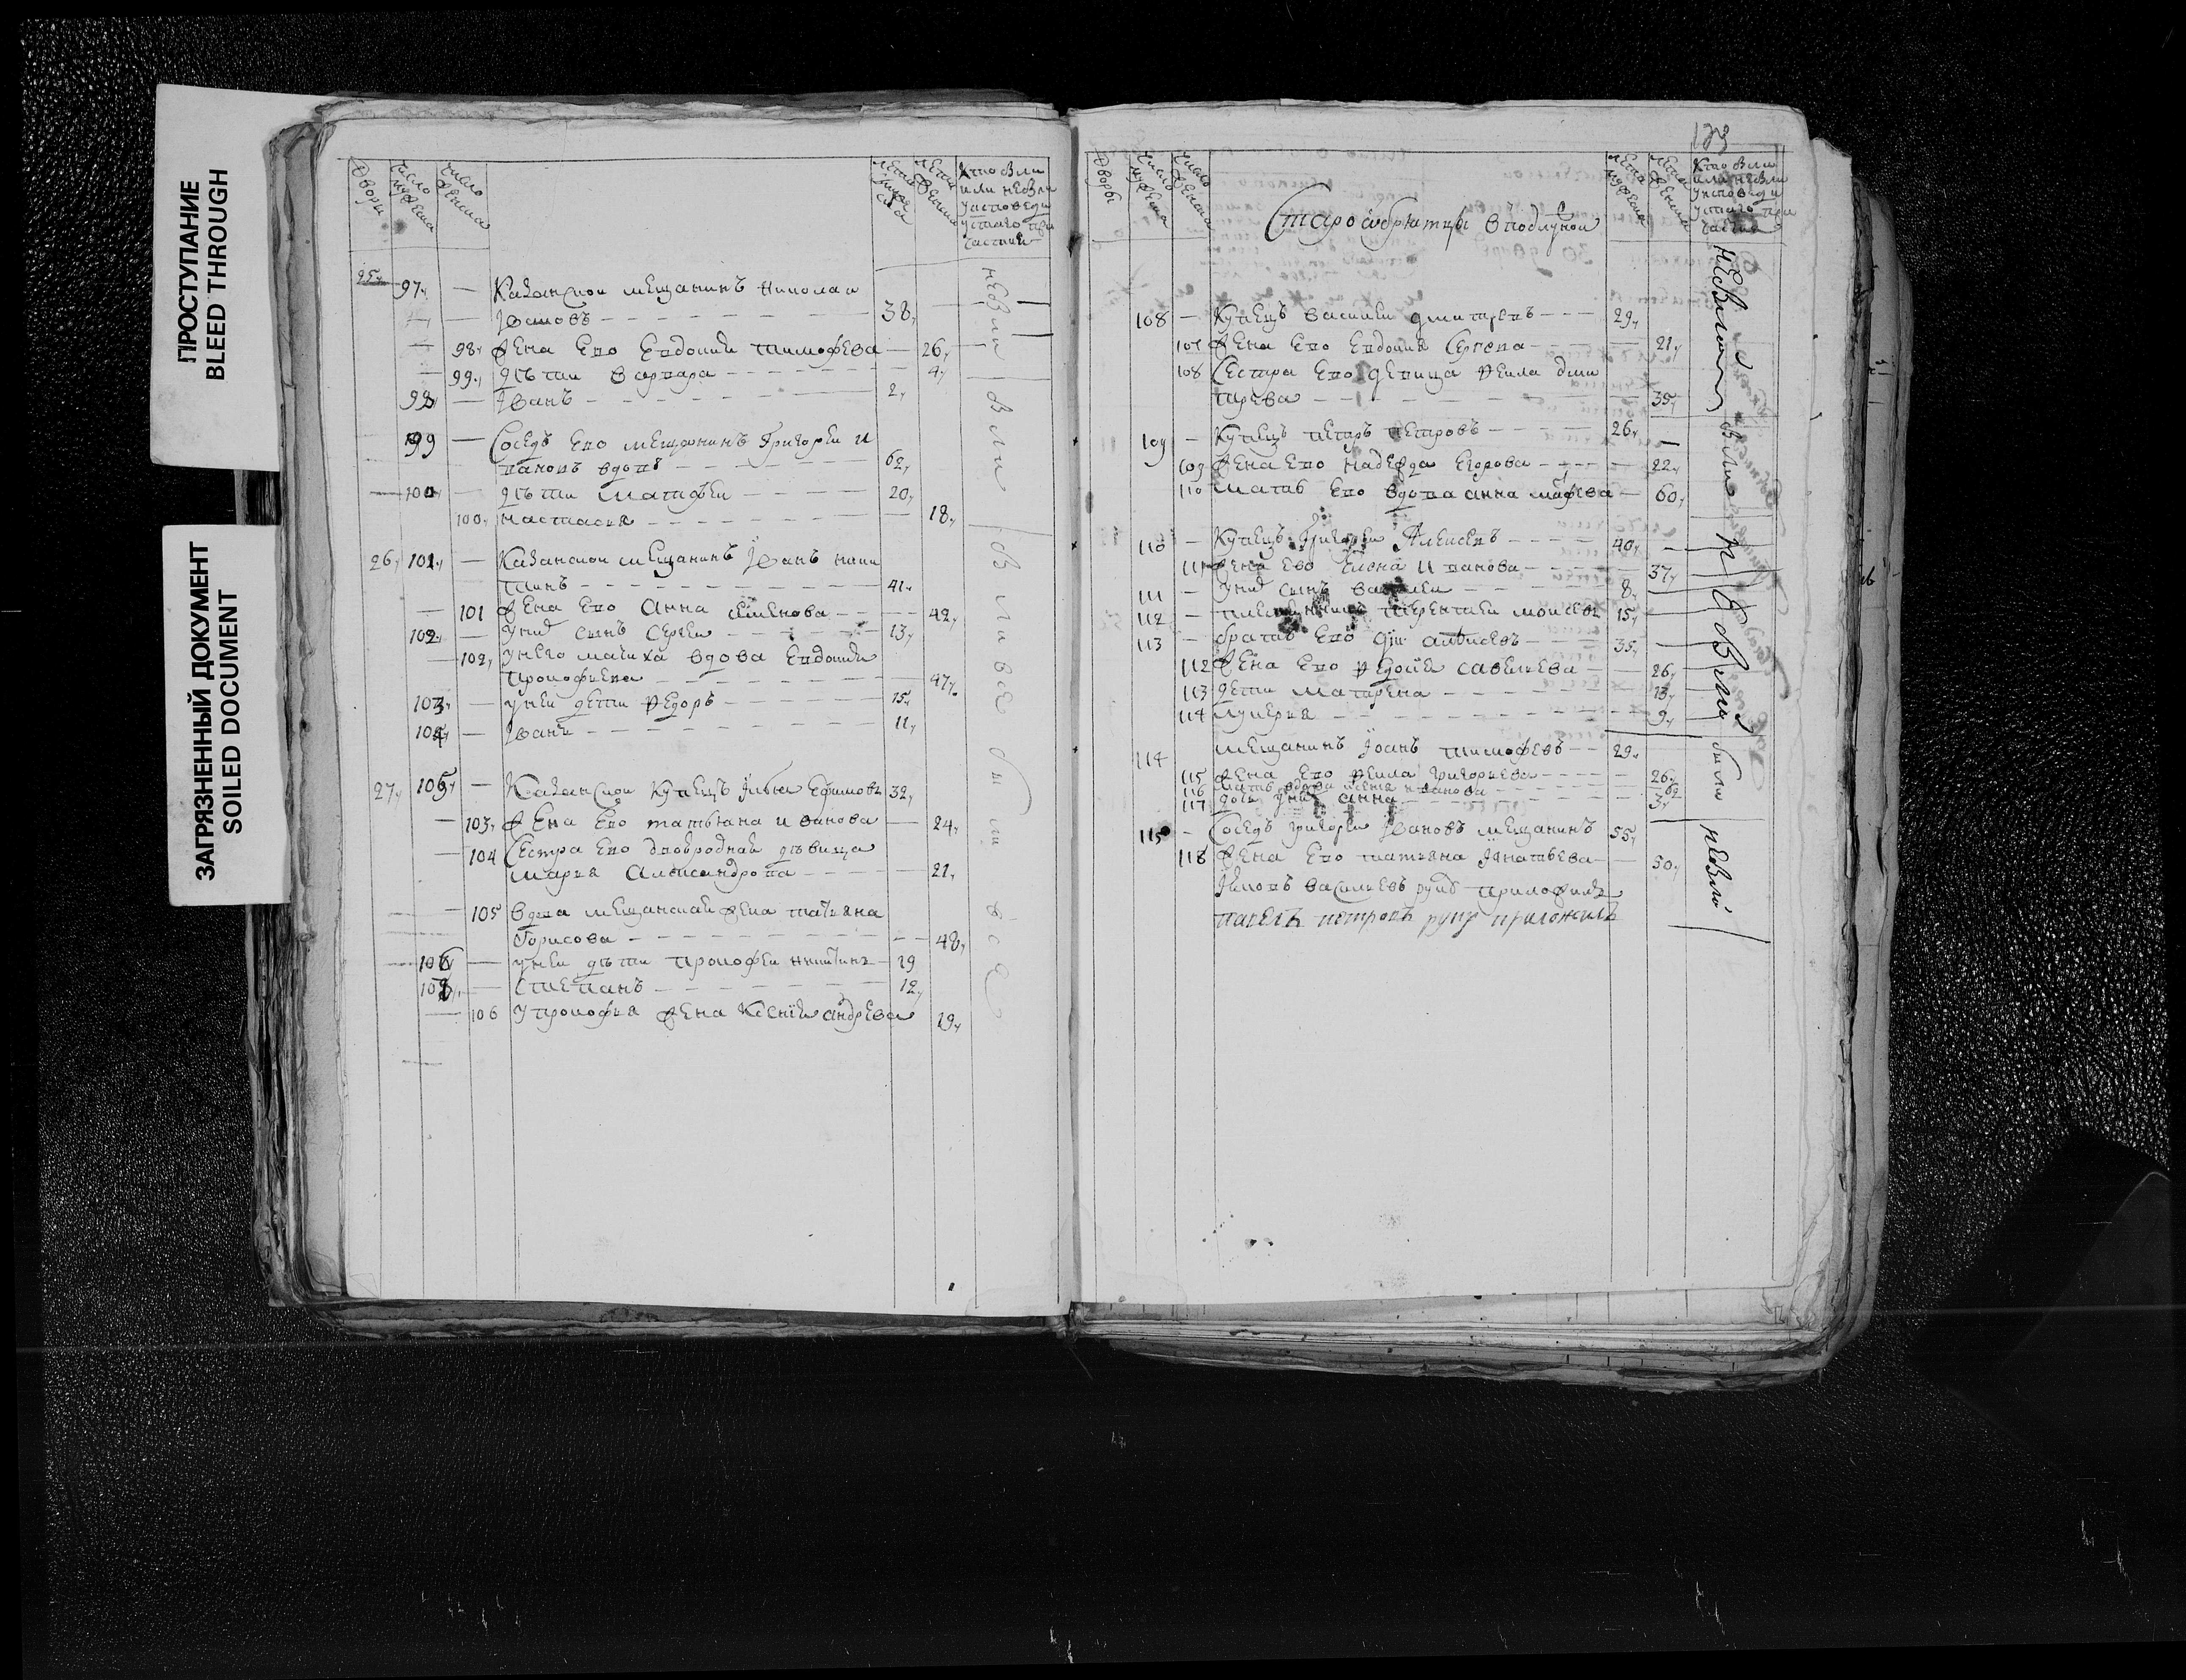 ПРОСТУПАНИЕ
BLEED THROUGH
ЗАГРЯЗНЕННЫЙ ДОКУМЕНТ
SOILED DOCUMENT
Дворы
число мужеска
число женска
лета мужеска
лета женска
Кто были
или небыли
у исповеди
у святаго при
частия
25
97 — Казанской мещанинъ Николаи
Ивановъ 38
98 жена ево Евдокия тимофева 26
99 дѣти варвара 4
98 — Иванъ 2
99 — Соседъ ево мещанинъ Григореи и
вановъ вдовъ 62
100 — дѣти матфеи 20
100 настасия 18
26 101 — Казанской мещанинъ Иванъ ники
тинъ 41
101 жена ево анна семенова 42
102 — у них сынъ Сергеи 13
102 у него мачиха вдова Евдокия
прокофиева 47
103 — у неи дети Федоръ 15
104 — Иванъ 11
27 105 — Казанской купецъ Илья Ефимовъ 32
103 жена ево татьяна иванова 24
104 Сестра ево двоюродная дѣвица
марья александрова 21
105 вдова мещанская жена татияна
борисова 48
106 — у неи дѣти прокофеи никитинъ 29
108 — степанъ 12
106 у прокофия жена Ксения андрева 29
небыли
были
были все
были
все
123
Дворы
число мужеска
число женска
лета мужеска
лета женска
Кто были
или небыли
у исповеди
у святаго при
частия
Старообрятцы в подушном
108 — Купецъ василеи дмитревъ 29
107 жена ево Евдокия Сергева 21
108 Сестра ево девица Фекла дми
трева 35
109 — Купецъ петръ петровъ 26
109 жена ево надежда Егорова 22
110 мать ево вдова анна 60
110 — Купецъ григореи Алексевъ 40
111 жена ево Елена иванова 37
111 — у них сынъ василеи 8
112 — племянникъ терентеи моисевъ 15
113 — братъ ево алексевъ 35
112 жена ево Федосия савельева 26
113 дети матрена 13
114 лукерия 9
114 мещанинъ Иоанъ тимофевъ 29
115 жена ево Фекла григорьева 26
116 мать вдова иванова
117 дочь у них анна 3
115 — Соседъ григореи Ивановъ мещанинъ 55
118 жена ево татияна Игнатьева 50
васильевъ руку приложилъ
павелъ петровъ руку приложилъ
небыли
были
были
небыли